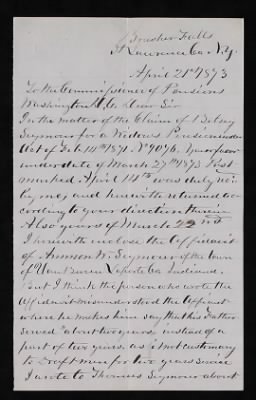 Brasher Falls
St Lawrence Co. N.Y.
April 21st 1873
To the Commissioner of Pensions
Washington D.C. Dear Sir
In the matter of the Claim of Betsey
Seymour for a Widows Pension under
Act of Feb 14th 1871 No 9076. Your favor
under date of March 27th 1873 Post
marked April 14th was duly rec'd
by me, and herewith returned ac-
cording to your direction therein
Also yours of March 22nd
I herewith enclose the Affidavit
of Ammon W. Seymour of the town
of Van Buren Laporte Co. Indiana.
But I think the person who wrote the
Affidavit misunderstood the Affiant
where he makes him say that his Father
served "about two years, instead of a
part of two years, as it is not customary
to Draft men for two years service
I wrote to Thomas Seymour about